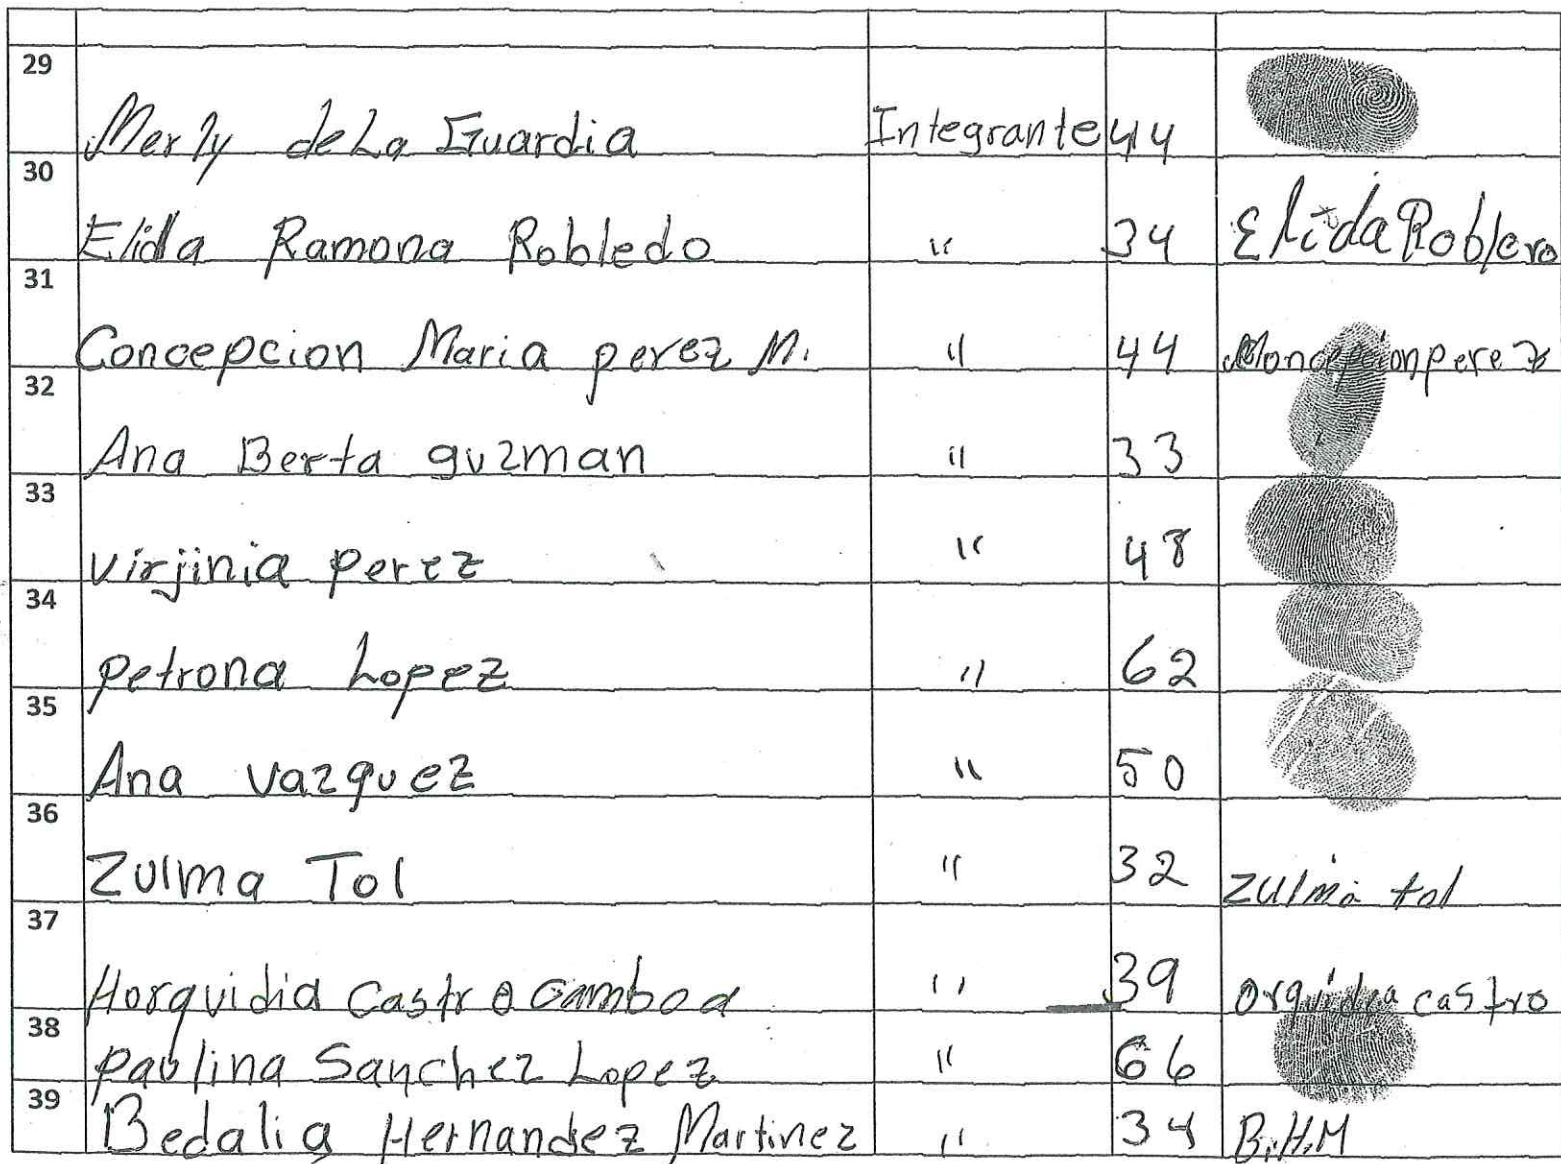 29 Merly de La Guardia Integrante 44
30 Elida Ramona Robledo " 34 Elida Roblero
31 Concepcion Maria perez M. " 44 perez
32 Ana Berta guzman " 33
33 virjinia perez " 48
34 petrona Lopez " 62
35 Ana vazquez " 50
36 Zulma Tol " 32 zulma tol
37 Horquidia Castro Gamboa " 39 orquidea castro
38 paulina Sanchez Lopez " 66
39 Bedalia Hernandez Martinez " 34 B.H.M